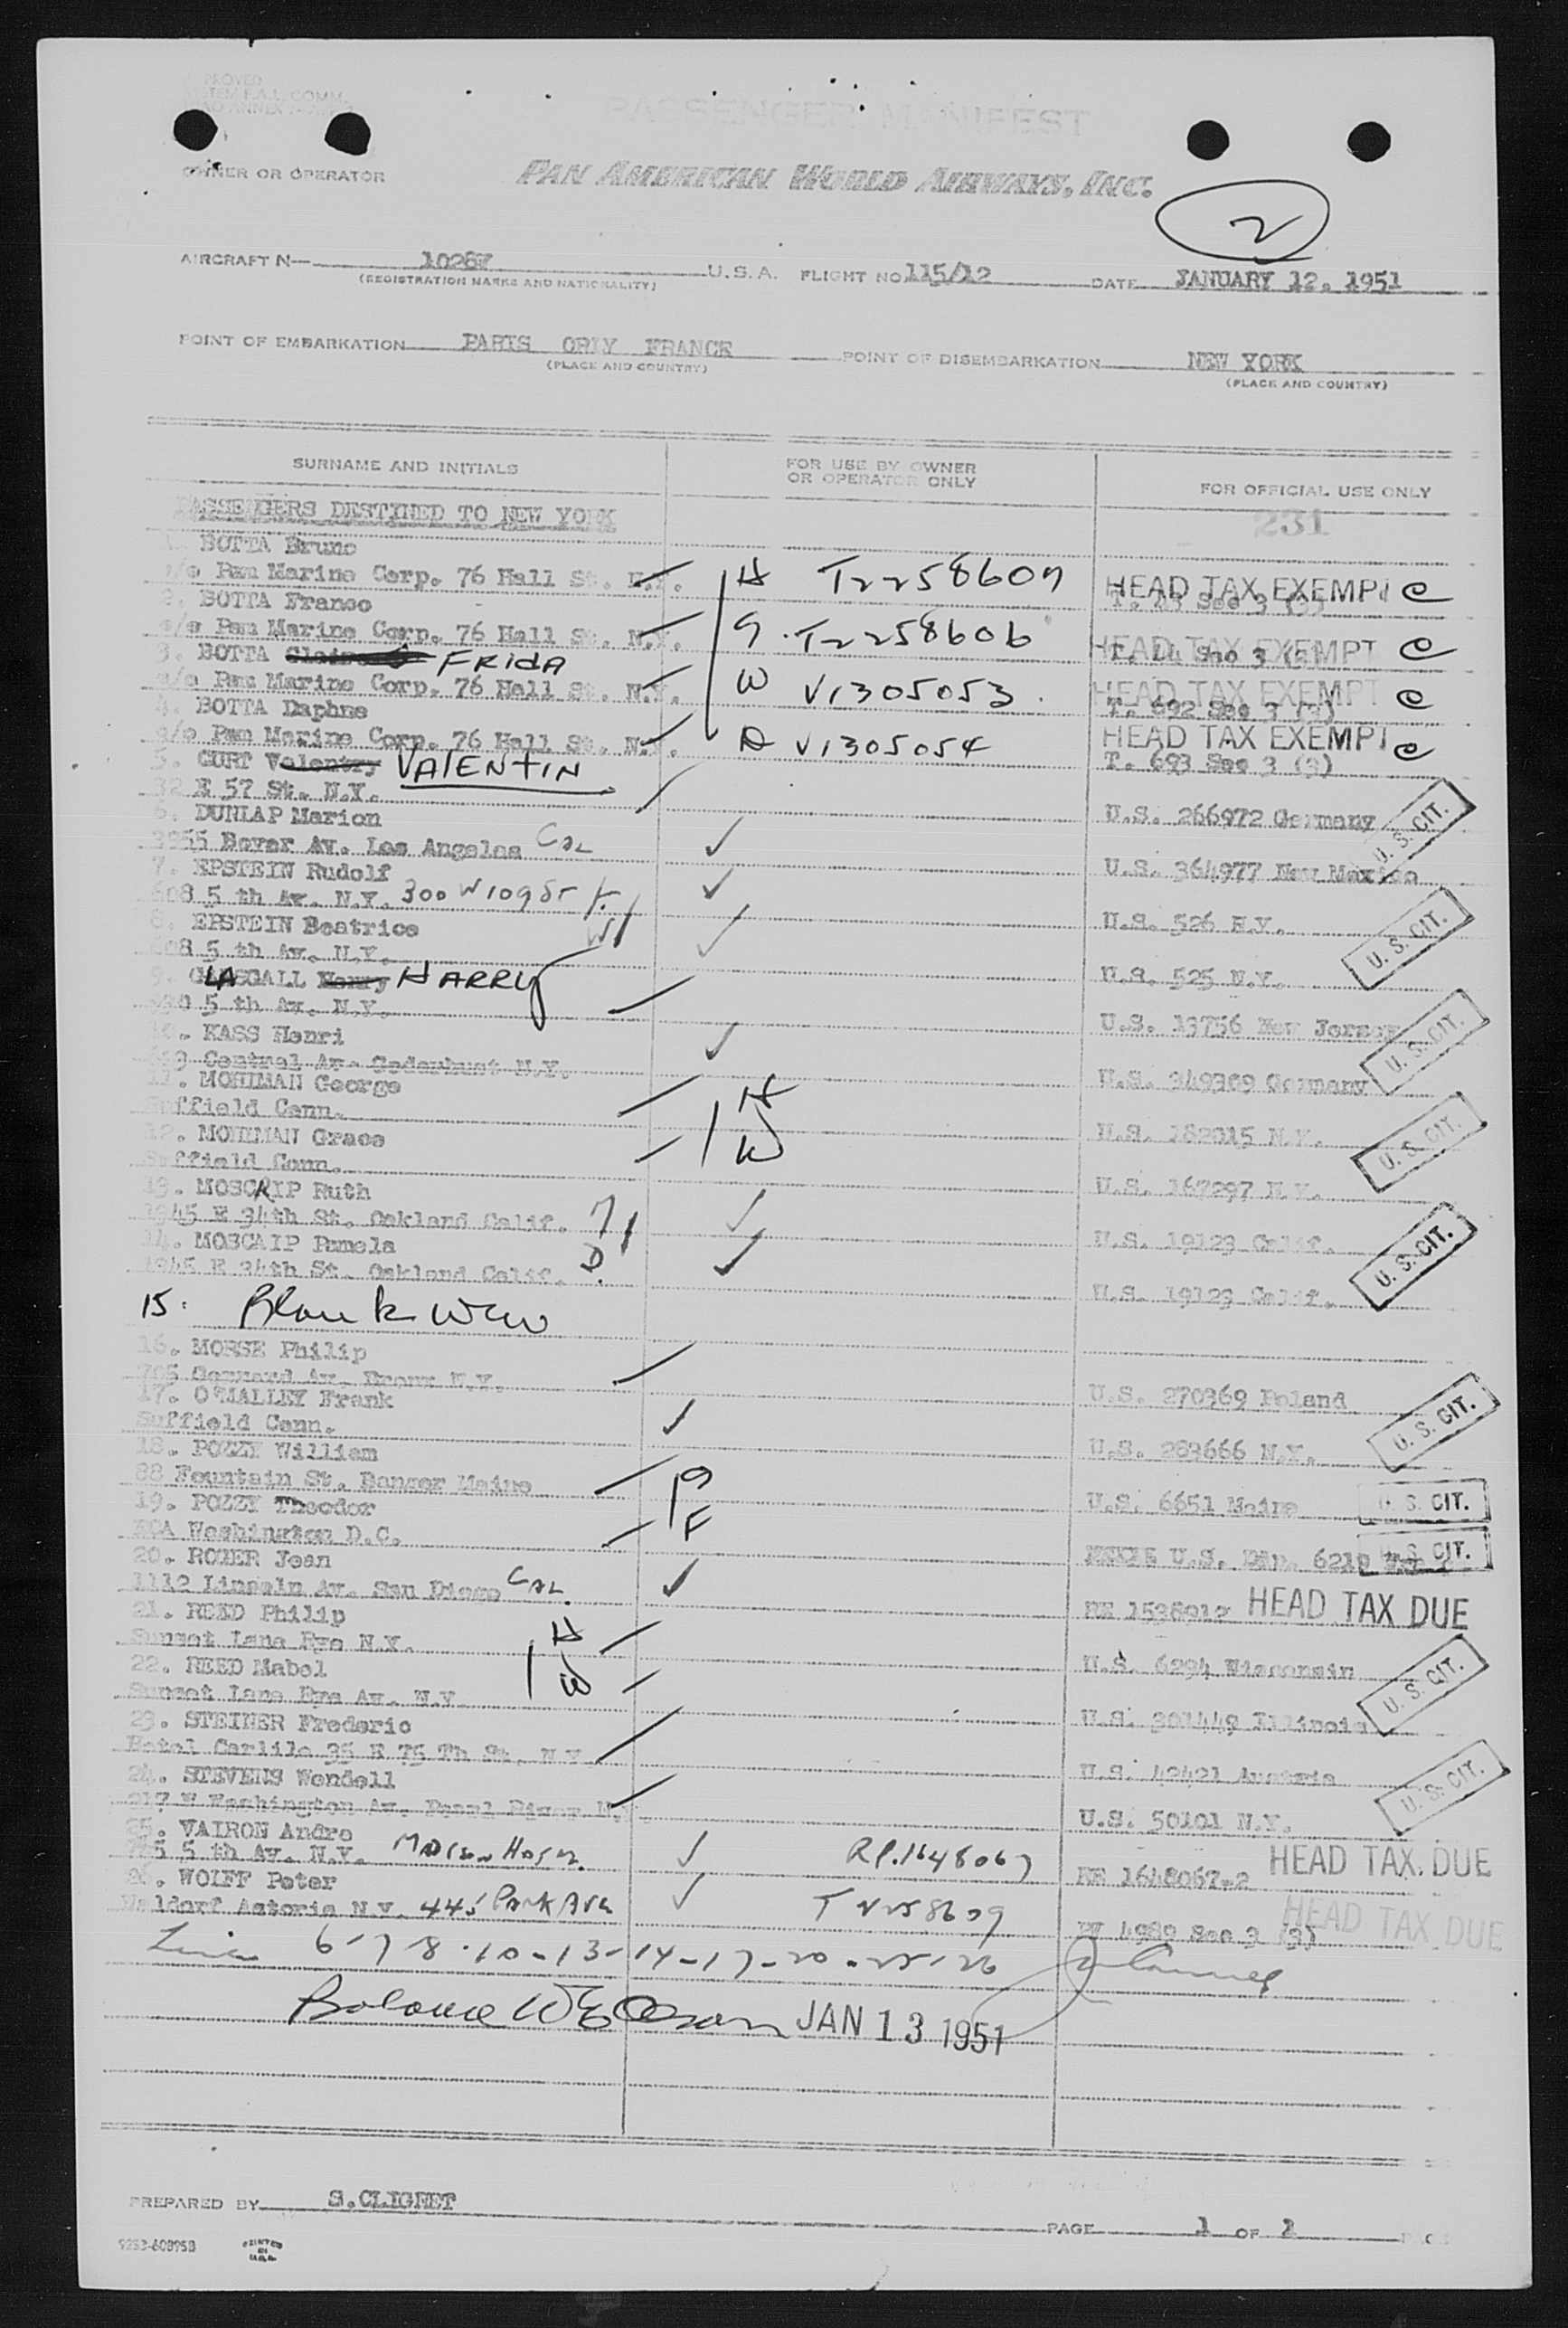 PASSENGER MANIFEST
OWNER OR OPERATOR
PAN AMERICAN WORLD AIRWAYS, INC.
2
AIRCRAFT N— 1026V U.S.A. FLIGHT NO 115/12 DATE JANUARY 12. 1951
(REGISTRATION MARKS AND NATIONALITY)
POINT OF EMBARKATION PARIS ORLY FRANCE POINT OF DISEMBARKATION NEW YORK
(PLACE AND COUNTRY) (PLACE AND COUNTRY)
SURNAME AND INITIALS FOR USE BY OWNER OR OPERATOR ONLY FOR OFFICIAL USE ONLY
PASSENGERS DESTINED TO NEW YORK 231
1. BOTTA Bruno
c/o Pan Marine Corp. 76 Hall St. N.Y. H T2258607 HEAD TAX EXEMPT C
2. BOTTA Franco T. Sec 3 (3)
c/o Pan Marine Corp. 76 Hall St. N.Y. S T2258606 HEAD TAX EXEMPT C
3. BOTTA FRIDA T. Sec 3 (3)
c/o Pan Marine Corp. 76 Hall St. N.Y. W V1305053 HEAD TAX EXEMPT C
4. BOTTA Daphne T. 692 Sec 3 (3)
c/o Pan Marine Corp. 76 Hall St. N.Y. D V1305054 HEAD TAX EXEMPT C
5. CURT Valentry VALENTIN T. 693 Sec 3 (3)
32 E 57 St. N.Y.
6. DUNLAP Marion U.S. 266972 Germany U.S. CIT.
Bever Av. Los Angeles CAL
7. EPSTEIN Rudolf U.S. 364977 New Mexico
608 5 th Av. N.Y. 300 W 109 St H
8. EPSTEIN Beatrice W U.S. 526 N.Y. U.S. CIT.
608 5 th Av. N.Y.
9. GLASGALL Henry HARRY U.S. 525 N.Y.
5 th Av. N.Y.
10. KASS Henri U.S. 13756 New Jersey U.S. CIT.
Central Av. Cedarhust N.Y.
11. MOHLMAN George H U.S. 349389 Germany
Suffield Conn.
12. MOHLMAN Grace W U.S. 182015 N.Y. U.S. CIT.
Suffield Conn.
13. MOSCRIP Ruth U.S. 167297 N.Y.
1945 E 34th St. Oakland Calif. M
14. MOSCAIP Pamela U.S. 19123 Calif. U.S. CIT.
1945 E 34th St. Oakland Calif. D
15. Blank U.S. 19123 Calif.
16. MORSE Philip
Av. Bronx N.Y.
17. O'MALLEY Frank U.S. 270369 Poland U.S. CIT.
Suffield Conn.
18. POZZY William U.S. 283666 N.Y.
88 Fountain St. Bangor Maine
19. POZZY Theodor S F U.S. 6651 Maine U.S. CIT.
ECA Washington D.C.
20. ROGER Jean U.S. Dip. U.S. CIT.
1112 Lincoln Av. San Diego CAL.
21. REED Philip RE HEAD TAX DUE
Sunset Lane Rye N.Y. H
22. REED Mabel W U.S. 6294 Wisconsin U.S. CIT.
Sunset Lane Rye Av. N.Y.
23. STEINER Frederic U.S. 301449 Illinois
Hotel Carlile 35 E 75 Th St. N.Y.
24. STEVENS Wendell U.S. 42421 Austria U.S. CIT.
217 W Washington Av. Pearl River N.Y.
25. VAIRON Andre U.S. 50101 N.Y.
5 th Av. N.Y. RP.1648067 HEAD TAX DUE
26. WOLFF Peter RE 1648067-2
Waldorf Astoria N.Y. 445 PARK AVE T 2258609 HEAD TAX DUE
4989 Sec 3 (3)
6-7 8-10-13-14-17-20-25-26
Balance
JAN 13 1951
PREPARED BY S.CLIGNET
PAGE 1 OF 1
9253-60895B PRINTED IN U.S.A.